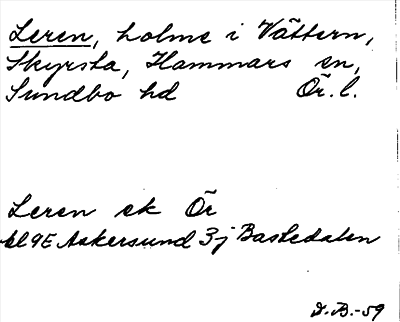 Leren, holme i Vättern,
Skyrsta, Hammars sn,
Sundbo hd Ör. l.
Leren ek Ör
bl 9E Askersund 3j Bastedalen
D. B. -59